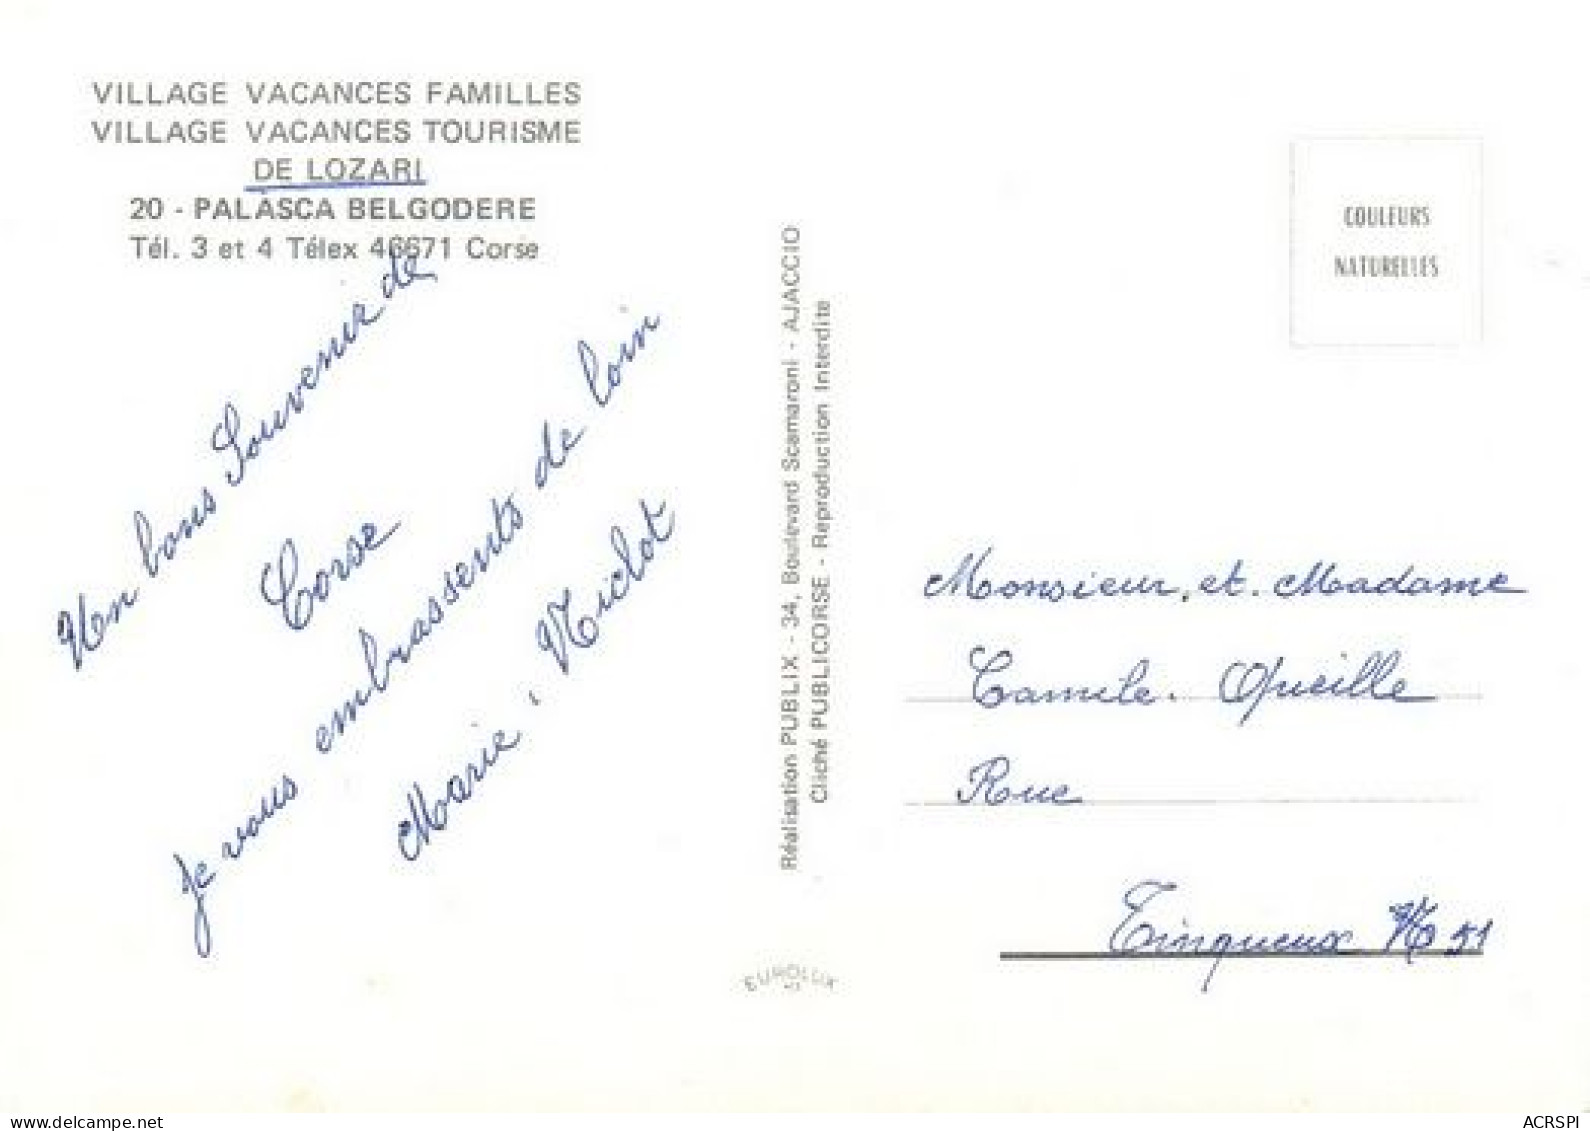 VILLAGE VACANCES FAMILLES
VILLAGE VACANCES TOURISME
DE LOZARI
20 - PALASCA BELGODERE
Tél. 3 et 4 Télex 46671 Corse
Un bons Souvenir de
Corse
je vous embrassents de loin
Marie, Niclot
Réalisation PUBLIX - 34, Boulevard Scamaroni - AJACCIO
Cliché PUBLICORSE - Reproduction Interdite
EUROLUX
COULEURS
NATURELLES
Monsieur, et. Madame
Camile. Queille
Rue
Tinqueux 51
www.delcampe.net
ACRSPI